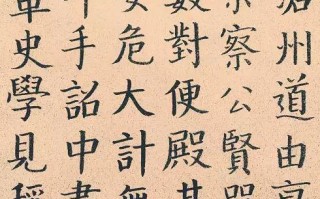 州道由京
察公賢
數對便殿其
安危大計無
手詔中書
史學見稱